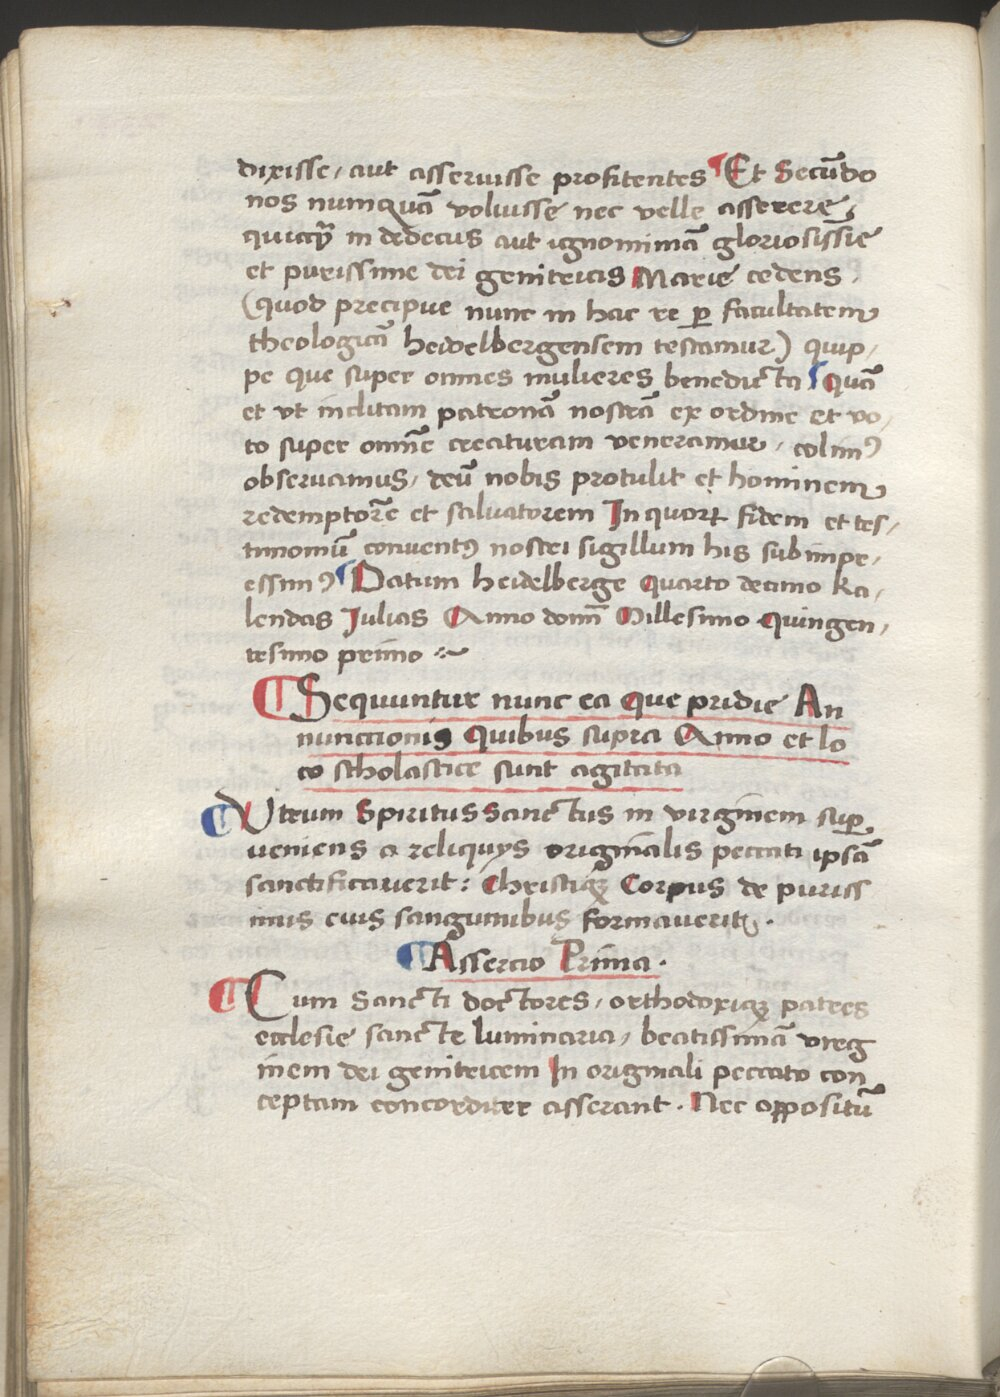 dixisse, aut asseruisse profitentes ¶ Et Secūdo
nos numquā voluisse nec velle asserere,
quicq̄ in dedecus aut ignominiā gloriosissīe
et purissime dei genitricis Marie cedens.
(quod precipue nunc in hac re ꝑ facultatem
theologicā heidelbergensem testamur) quip,
pe que super omnes mulieres benedicta ¶ Quā
et vt inclitam patronā nostrā ex ordine et vo,
to super omnē creaturam veneramur, colimꝰ
obseruamus, deū nobis protulit et hominem
redemptorē et saluatorem In quoꝝ fidem et tes,
timoniū conuentꝰ nostri sigillum his sub impr,
essimꝰ ¶ Datum heidelberge Quarto decimo Ka,
lendas Julias Anno domī Millesimo Quingen,
tesimo primo
¶ Sequuntur nunc ea que pridie An
nunctionis Quibus supra Anno et lo
co scholastice sunt agitata
¶ Vtrum Spiritus Sanctus in virginem suꝑ
ueniens a reliquijs originalis peccati ipsā
sanctificauerit: Christiqꝫ Corpus de puriss
imis eius sanguinibus formauerit.
¶ Assercio Prima.
¶ Cum Sancti doctores, orthodoxiqꝫ patres
ecclesie sancte luminaria, beatissimā virg
inem dei genitricem In originali peccato con
ceptam concorditer asserant. Nec oppositū